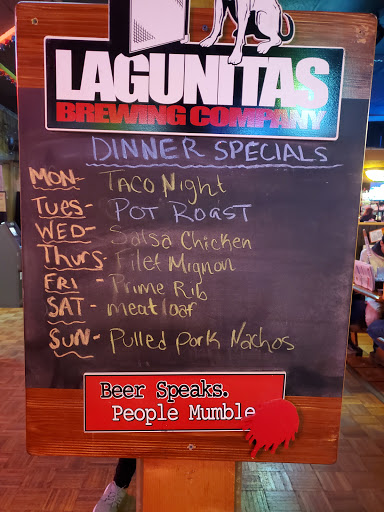 LAGUNITAS
BREWING COMPANY
DINNER SPECIALS
MON- Taco Night
Tues- POT ROAST
WED- Salsa Chicken
Thurs- Filet Mignon
FRI - Prime Rib
SAT- meatloaf
SUN- Pulled Pork Nachos
Beer Speaks.
People Mumble